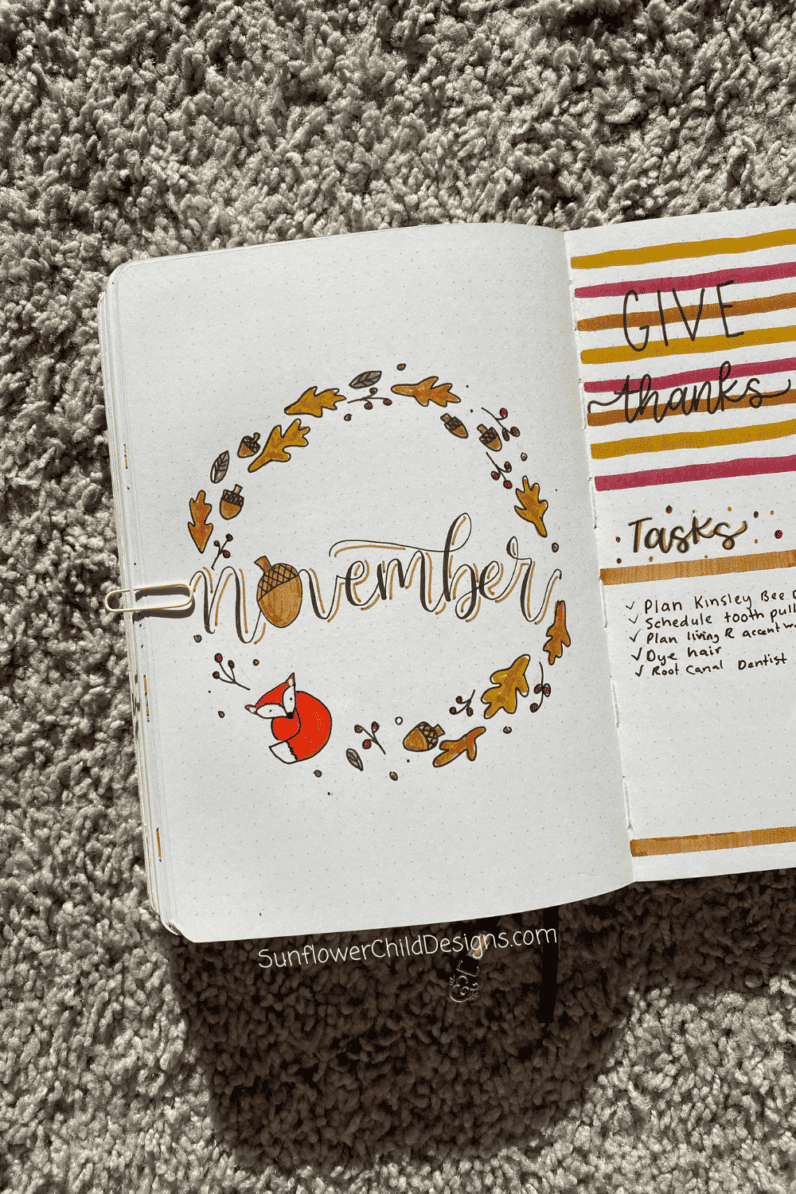 november
GIVE
thanks
Tasks
✓ Plan Kinsley Bee
✓ Schedule tooth pull
✓ Plan living R accent
✓ Dye hair
✓ Root Canal Dentist
SunflowerChildDesigns.com